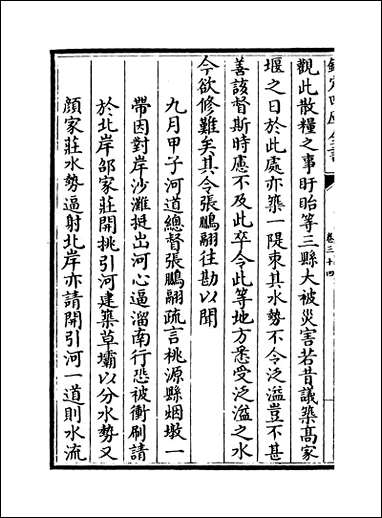 欽定四庫全書
卷三十四
觀此散糧之事盱眙等三縣大被災害若昔議築高家
堰之日於此處亦築一隄束其水勢不令泛溢豈不甚
善該督斯時慮不及此卒令此等地方悉受泛溢之水
今欲修難矣其令張鵬翮往勘以聞
九月甲子河道總督張鵬翮疏言桃源縣烟墩一
帶因對岸沙灘挺出河心逼溜南行恐被衝刷請
於北岸邵家莊開挑引河建築草壩以分水勢又
顔家莊水勢逼射北岸亦請開引河一道則水流